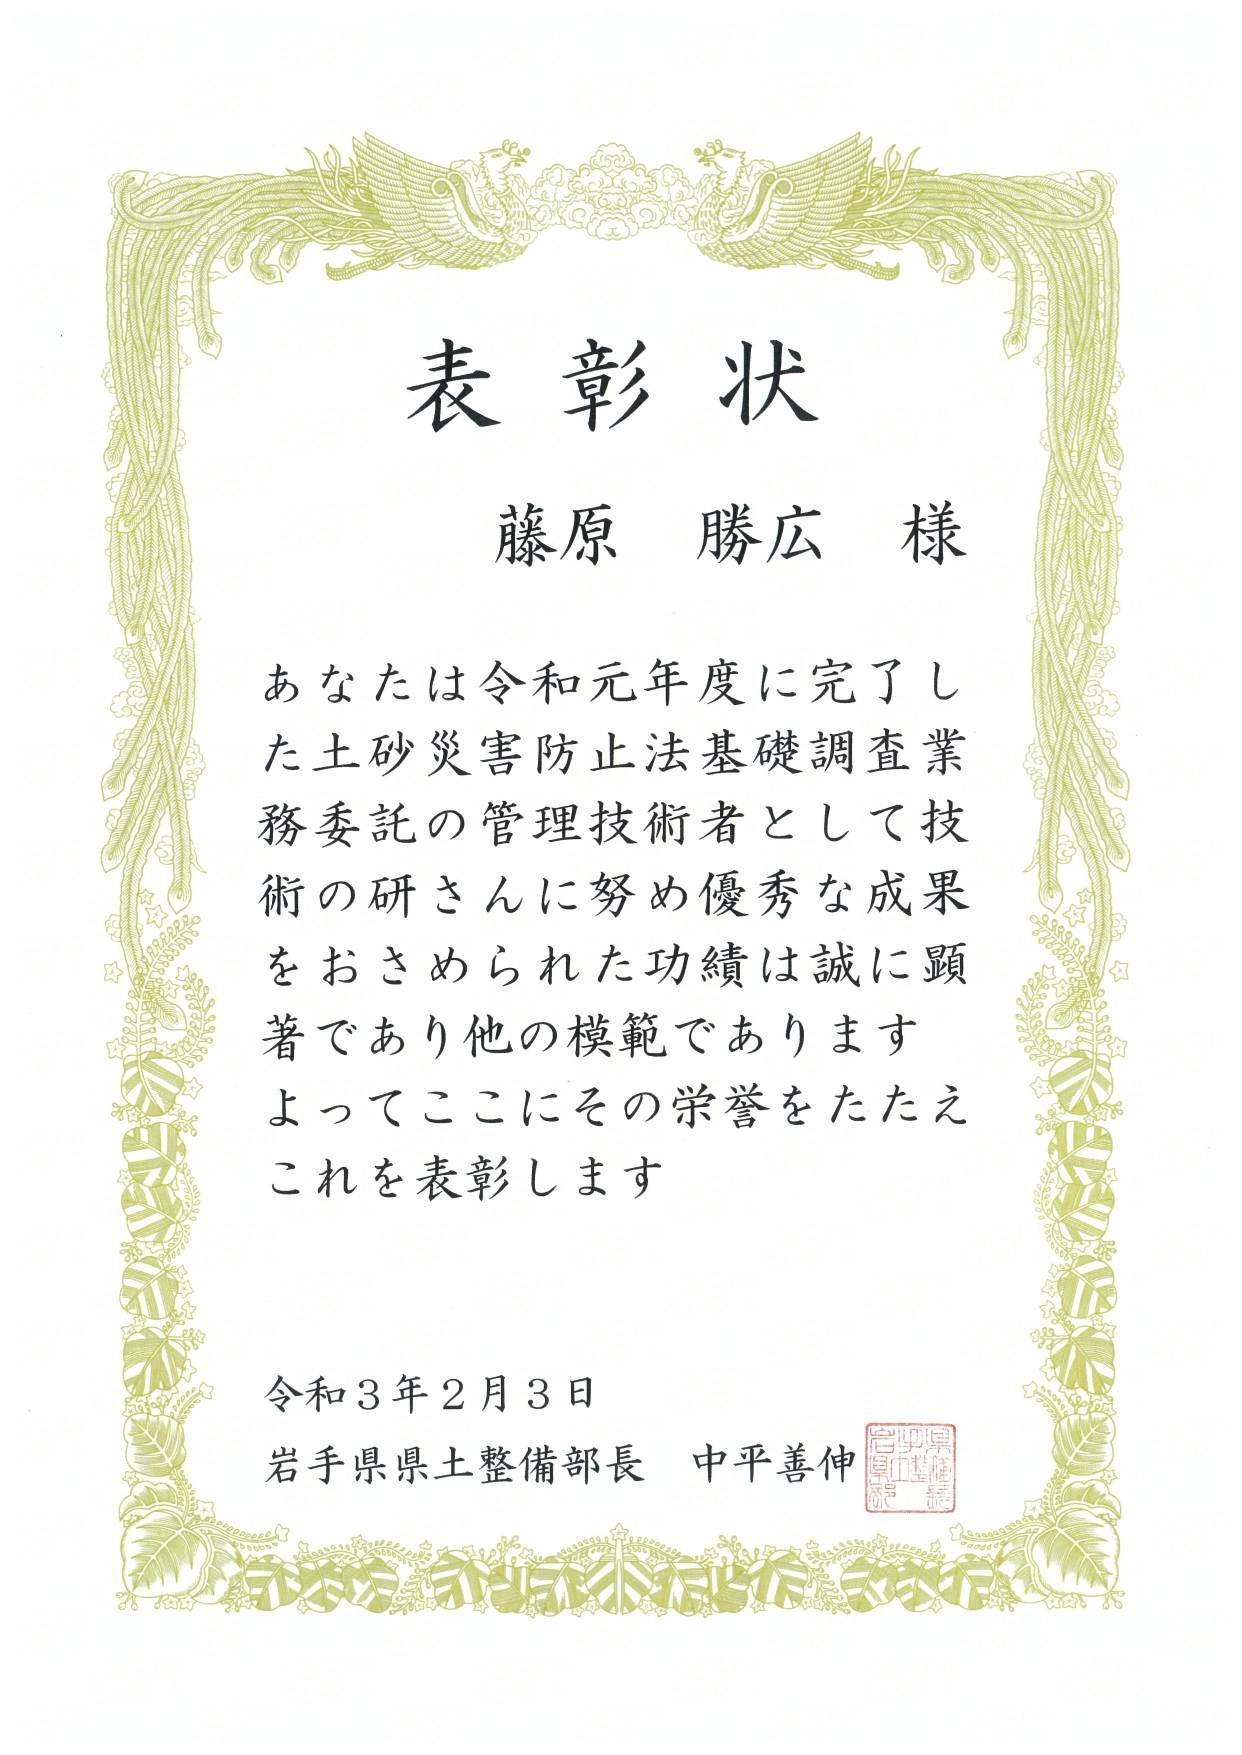 表彰状
藤原　勝広　様
あなたは令和元年度に完了し
た土砂災害防止法基礎調査業
務委託の管理技術者として技
術の研さんに努め優秀な成果
をおさめられた功績は誠に顕
著であり他の模範であります
よってここにその栄誉をたたえ
これを表彰します
令和３年２月３日
岩手県県土整備部長　中平善伸